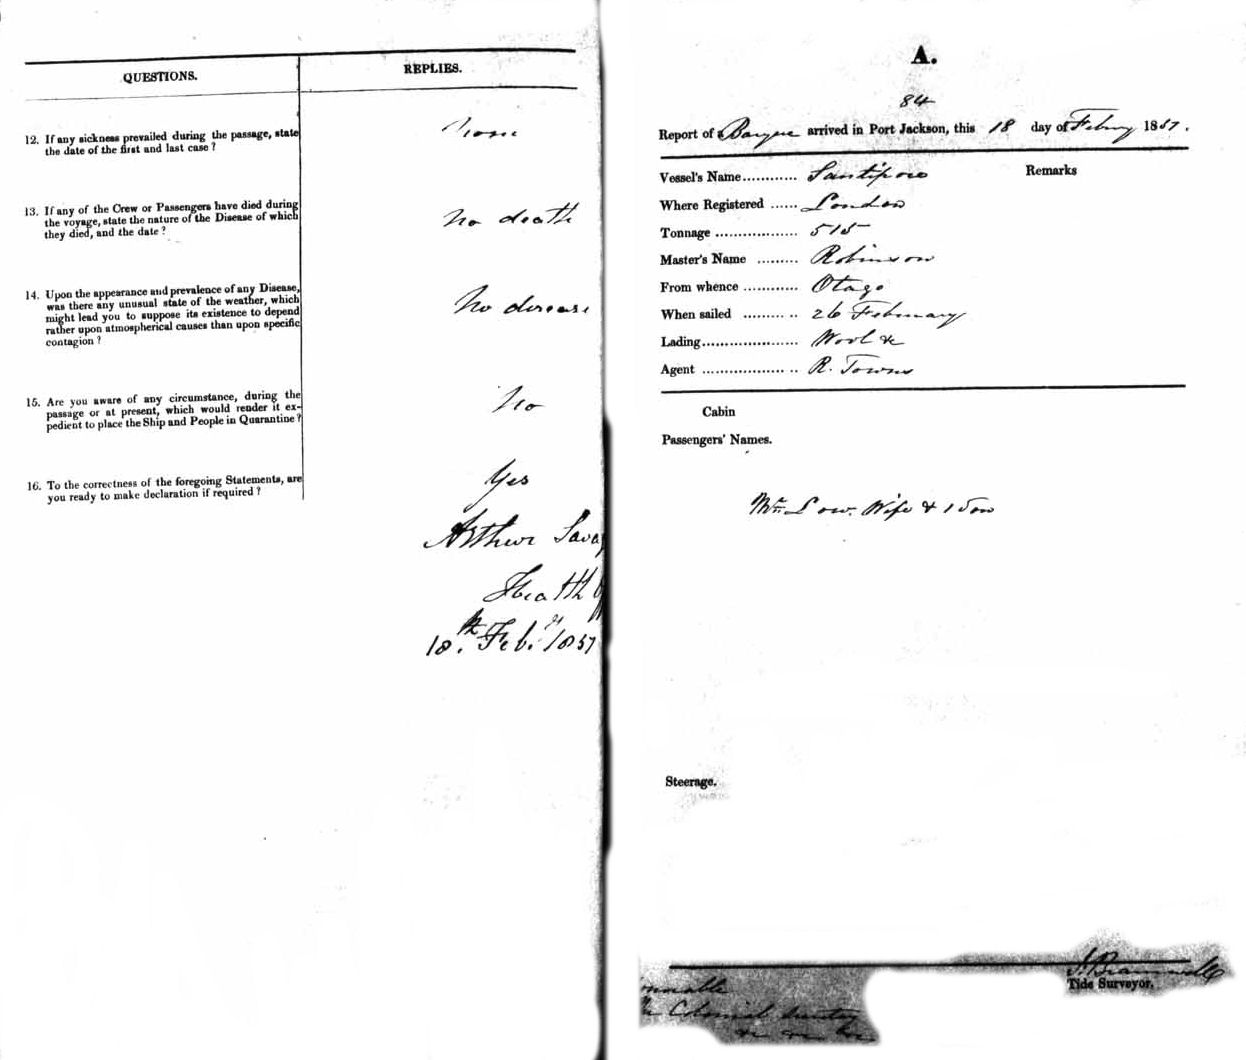 QUESTIONS.
REPLIES.
12. If any sickness prevailed during the passage, state
the date of the first and last case?
None
13. If any of the Crew or Passengers have died during
the voyage, state the nature of the Disease of which
they died, and the date?
No death
14. Upon the appearance and prevalence of any Disease,
was there any unusual state of the weather, which
might lead you to suppose its existence to depend
rather upon atmospherical causes than upon specific
contagion?
No disease
15. Are you aware of any circumstance, during the
passage or at present, which would render it ex-
pedient to place the Ship and People in Quarantine?
No
16. To the correctness of the foregoing Statements, are
you ready to make declaration if required?
Yes
Arthur Sava
Health
18th Feby 1857
A.
84
Report of a Barque arrived in Port Jackson, this 18 day of Febry 1857.
Vessel's Name............ Santipore
Remarks
Where Registered ...... London
Tonnage .................. 515
Master's Name ......... Robinson
From whence ............ Otago
When sailed ......... .. 26 February
Lading..................... Wool &c
Agent .................. .. R. Towns
Cabin
Passengers' Names.
Mr. Low. Wife & 1 Son
Steerage.
Tide Surveyor.
onorable
The Colonial Secretary